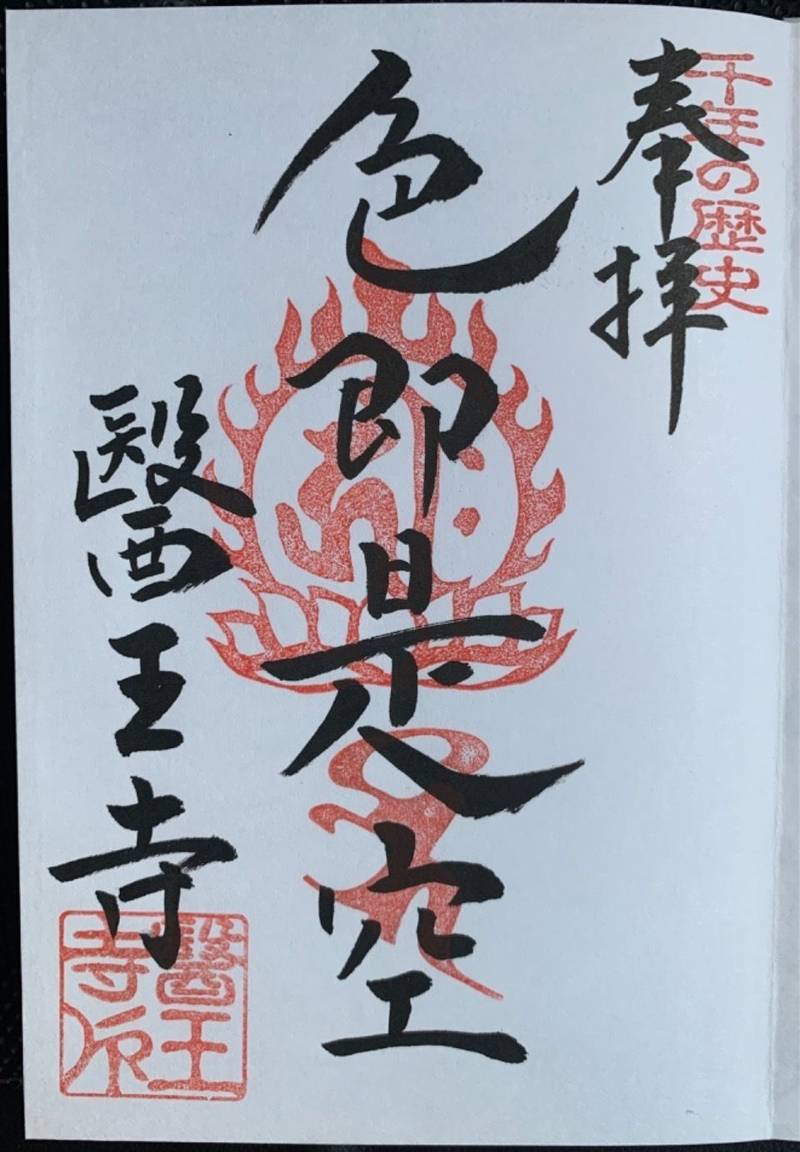 奉拝
千年の歴史
色即是空
醫王寺
醫王
寺印